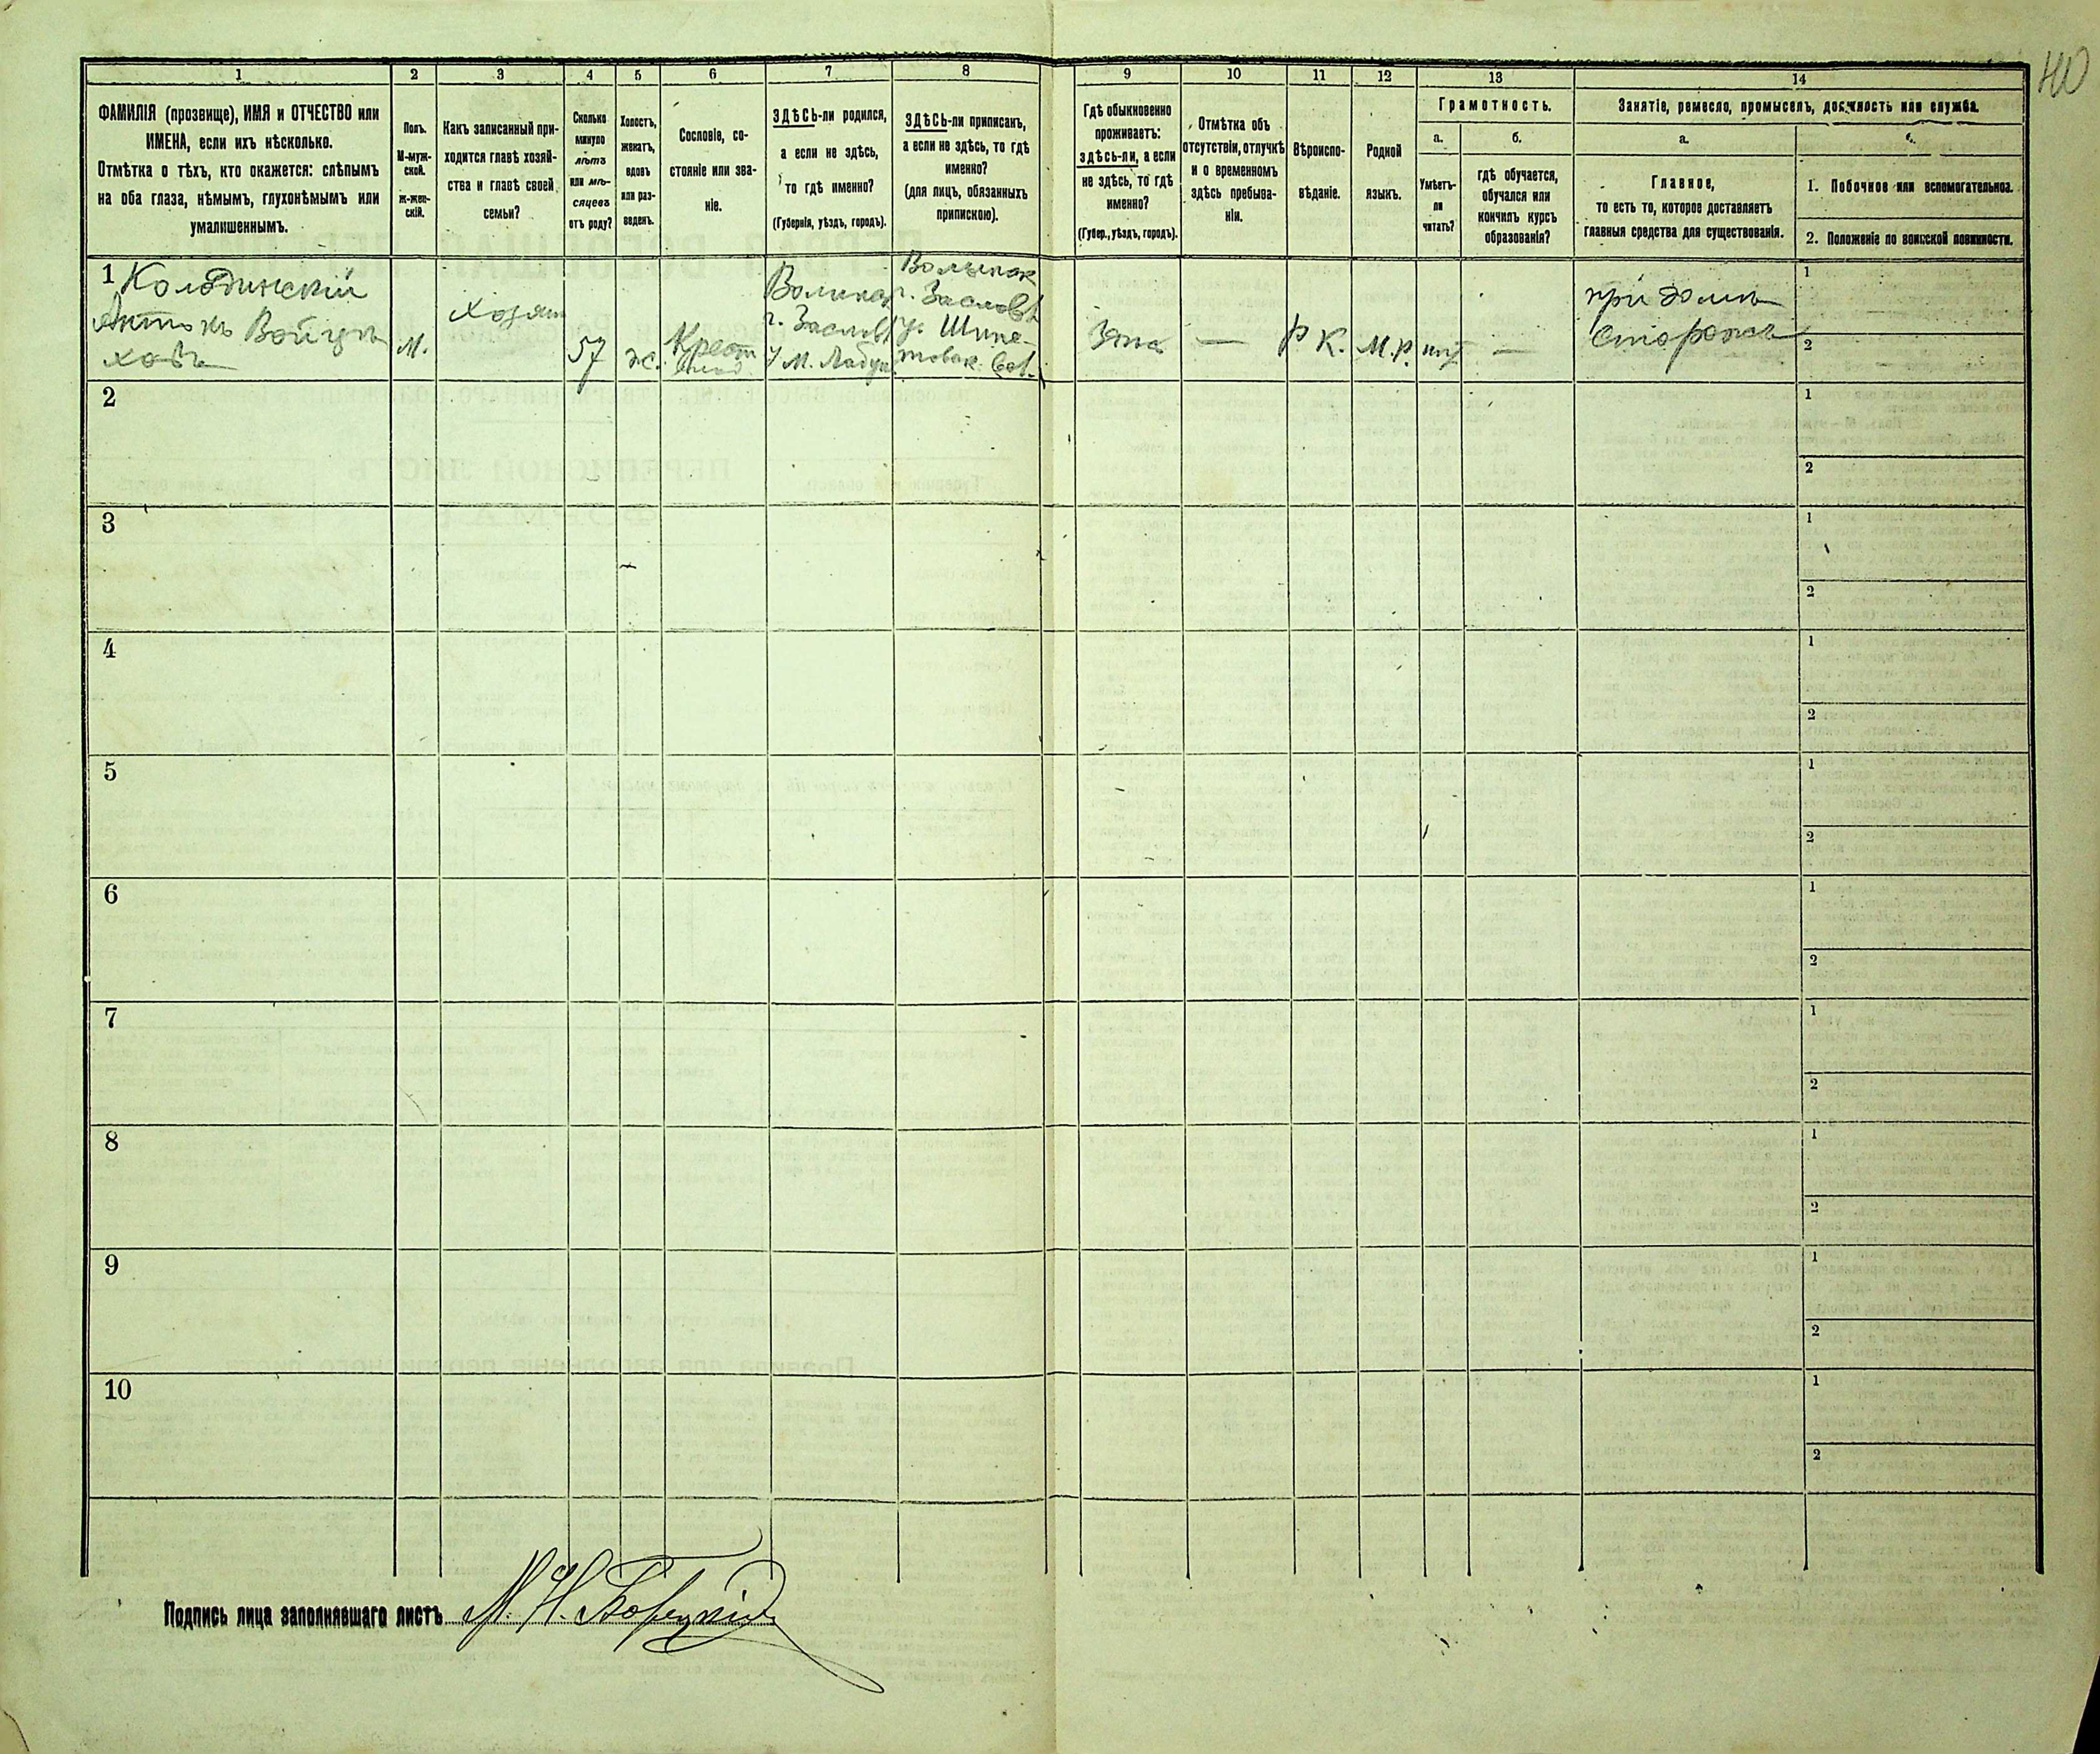 40
1 2 3 4 5 6 7 8 9 10 11 12 13 14
ФАМИЛІЯ (прозвище), ИМЯ и ОТЧЕСТВО или
ИМЕНА, если ихъ нѣсколько.
Отмѣтка о тѣхъ, кто окажется: слѣпымъ
на оба глаза, нѣмымъ, глухонѣмымъ или
умалишеннымъ.
Полъ.
М-муж-
ской.
ж-жен-
скій.
Какъ записанный при-
ходится главѣ хозяй-
ства и главѣ своей
семьи?
Сколько
минуло
лѣтъ
или мѣ-
сяцевъ
отъ роду?
Холостъ,
женатъ,
вдовъ
или раз-
веденъ.
Сословіе, со-
стояніе или зва-
ніе.
ЗДѢСЬ-ли родился,
а если не здѣсь,
то гдѣ именно?
(Губернія, уѣздъ, городъ).
ЗДѢСЬ-ли приписанъ,
а если не здѣсь, то гдѣ
именно?
(для лицъ, обязанныхъ
припискою).
Гдѣ обыкновенно
проживаетъ:
здѣсь-ли, а если
не здѣсь, то гдѣ
именно?
(Губер., уѣздъ, городъ).
Отмѣтка объ
отсутствіи, отлучкѣ
и о временномъ
здѣсь пребыва-
ніи.
Вѣроиспо-
вѣданіе.
Родной
языкъ.
Грамотность.
а.
Умѣетъ-
ли
читать?
б.
гдѣ обучается,
обучался или
кончилъ курсъ
образованія?
Занятіе, ремесло, промыселъ, должность или служба.
а.
Главное,
то есть то, которое доставляетъ
главныя средства для существованія.
1. Побочное или вспомогательное.
2. Положеніе по воинской повинности.
1
Антонъ Войцѣ
ховъ
М.
хозяин
57
ж.
Крест
г. Заслов
У М. Лабун
г. Заслов
у. Шипе-
товск.
—
Р К.
М.р.
нѣт
—
при домѣ
Сторожъ
1
2
2
1
2
3
1
2
4
1
2
5
1
2
6
1
2
7
1
2
8
1
2
9
1
2
10
1
2
Подпись лица заполнявшаго листъ